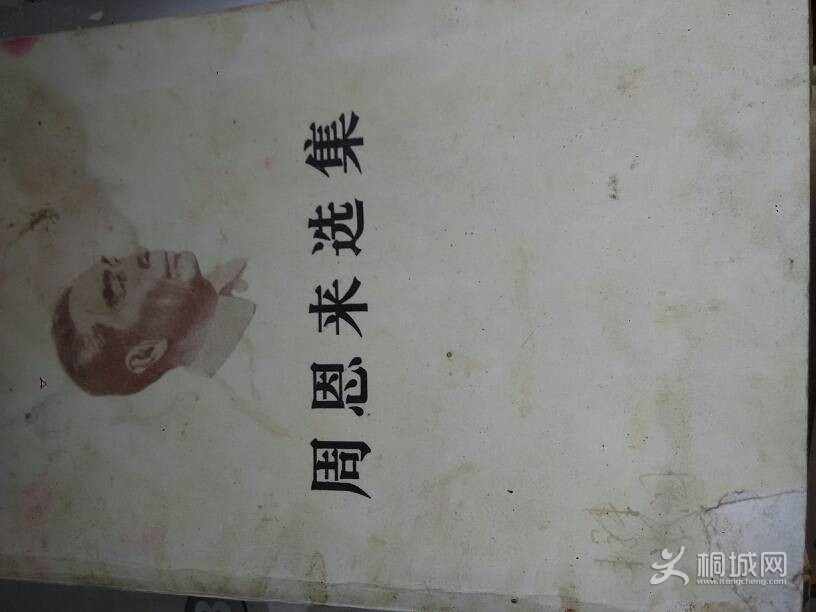 周恩来选集
桐城网
www.itongcheng.com